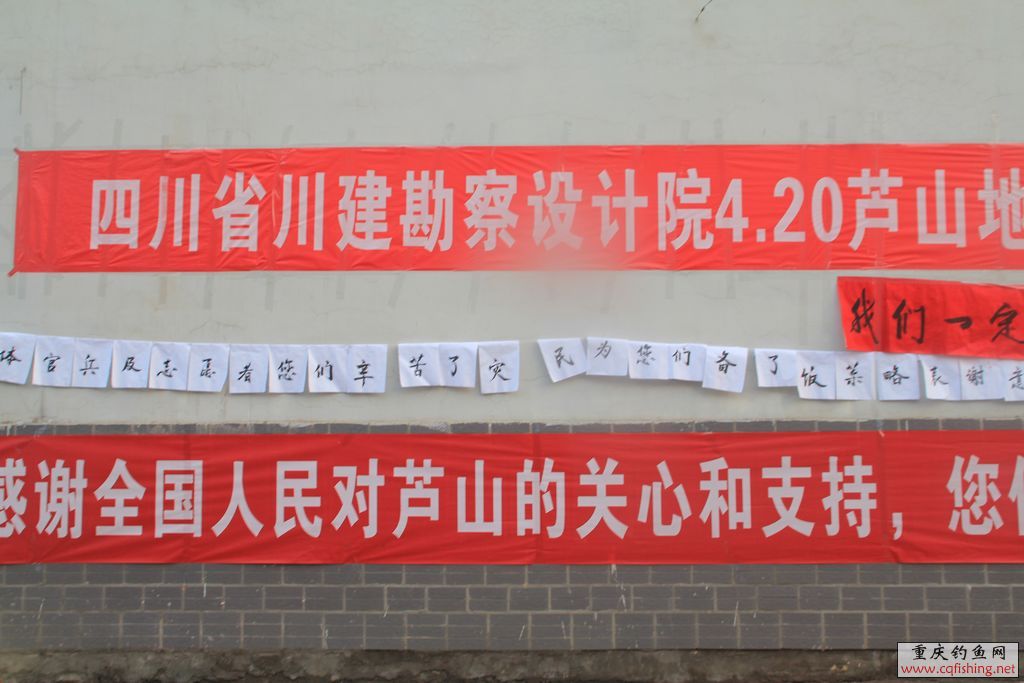 四川省川建勘察设计院4.20芦山地
我们一定
体官兵及志愿者您们辛苦了灾民为您们备了饭菜略表谢意
感谢全国人民对芦山的关心和支持，您们
重庆钓鱼网
www.cqfishing.net